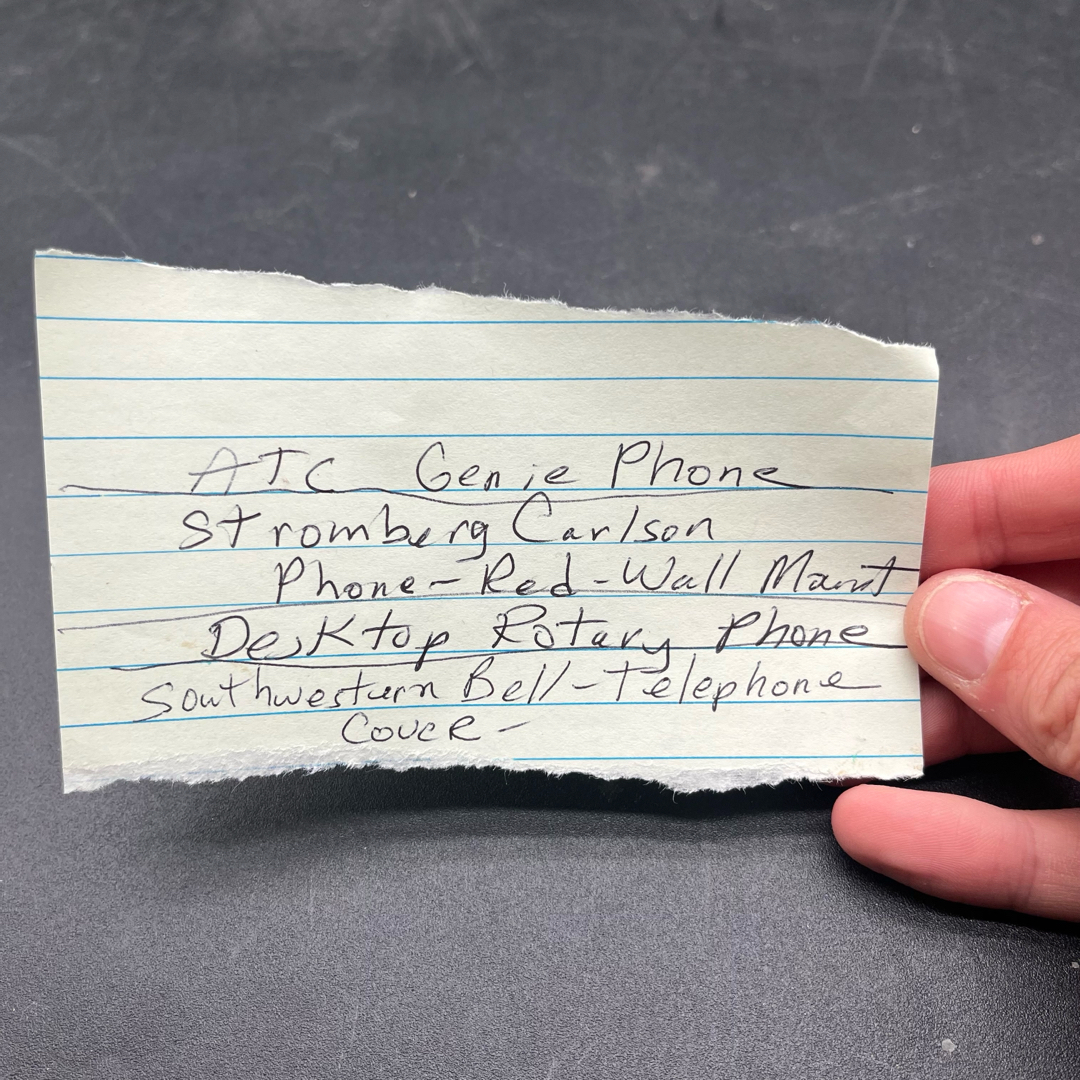 ATC Genie Phone
Stromberg Carlson
Phone-Red-Wall Mount
Desktop Rotary Phone
Southwestern Bell-Telephone
Cover-